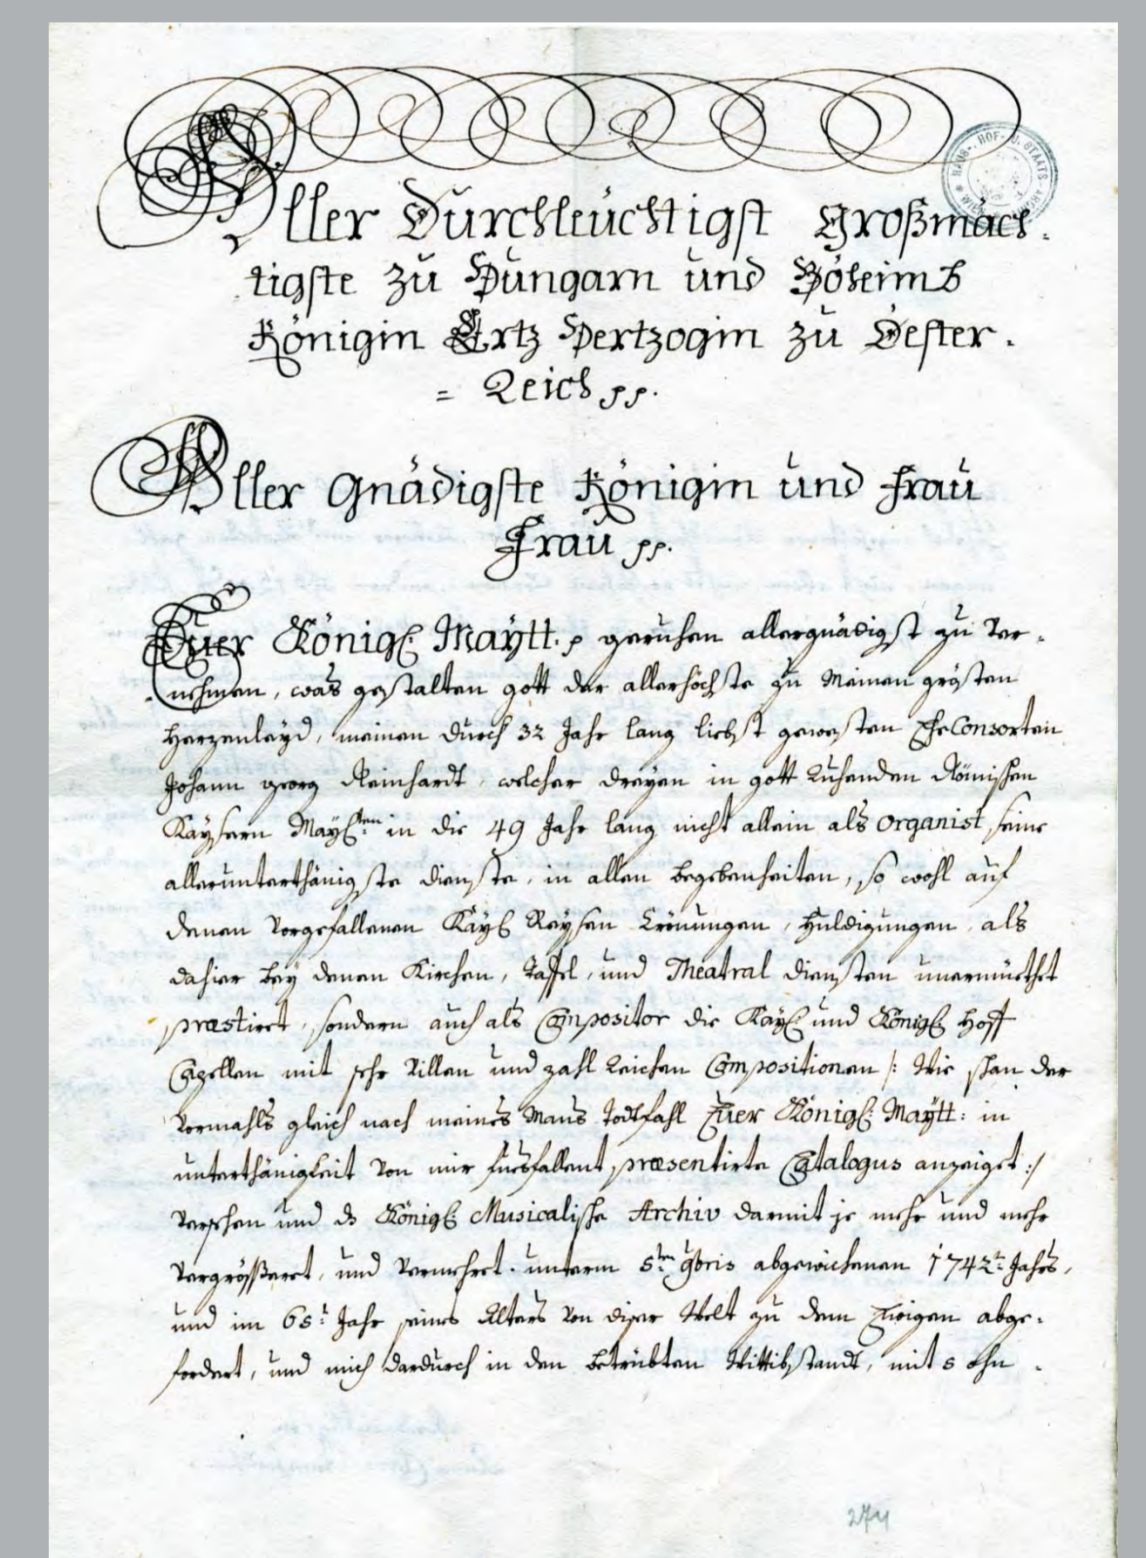 Aller Durchleüchtigst Großmäch-
tigste zu Hungarn und Böheimb
Königin Ertz Hertzogin zu Oester-
= Reich pp.
Aller Gnädigste Königin und Frau
Frau pp.
HAUS-, HOF- U. STAATS- ARCHIV WIEN
Euer Königl: Maÿtt: p geruhen allergnädigst zu Ver-
nehmen, was gestalten gott der allerhöchste zu Meinen grösten
Herzenleyd, meinen durch 32 Jahr lang liebst gewesten EheConsorten
Johann georg Reinhardt, welcher dreyen in gott Ruhenden Römischen
Kaysern Maÿl:ten in die 49 Jahr lang nicht allein als organist, seine
allerunterthänigste dienste, in allen begebenheiten, so wohl auf
denen Vorgefallenen Kaÿl Reysen Crönungen, Huldigungen, als
dahier beÿ denen Kirchen, Taffel, und Theatral diensten unermüethet
præstiret, sondern auch als Compositor die Kaÿl und Königl Hoff
Capellen mit sehr Villen und zahl Reichen Compositionen /: Wie schon der
Vormahls gleich nach meines Mans Todtfahl Euer Königl: Maÿtt: in
unterthänigkeit Von mir fuesfallent præsentirte Catalogus anzeiget :/
Versehen und ds Königl: Musicalische Archiv darmit je mehr und mehr
Vergrösseret, und Vermehret. unterm 5:ten 9bris abgewichenen 1742:ten Jahrs,
und im 65:t Jahr seines Alters Von diser Welt zu dem Ewigen abge-
fordert, und mich dardurch in den betrübten Wittibstandt, mit 5 ohn-
274